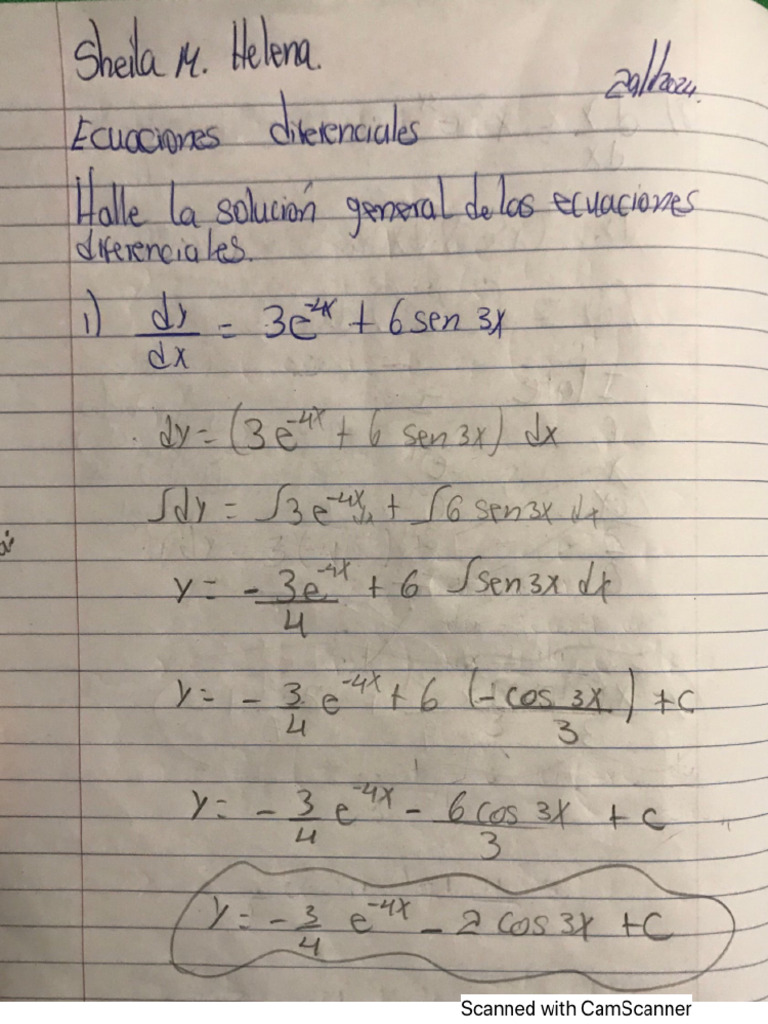 Sheila M. Helena.
Ecuaciones diferenciales
Halle la solución general de las ecuaciones
diferenciales.
1) dy/dx = 3e^-4x + 6 sen 3x
dy = (3e^-4x + 6 sen 3x) dx
∫dy = ∫3e^-4x dx + ∫6 sen 3x dx
y = - 3e^-4x/4 + 6 ∫sen 3x dx
y = - 3/4 e^-4x + 6 (-cos 3x/3) + c
y = - 3/4 e^-4x - 6 cos 3x/3 + c
y = - 3/4 e^-4x - 2 cos 3x + C
Scanned with CamScanner